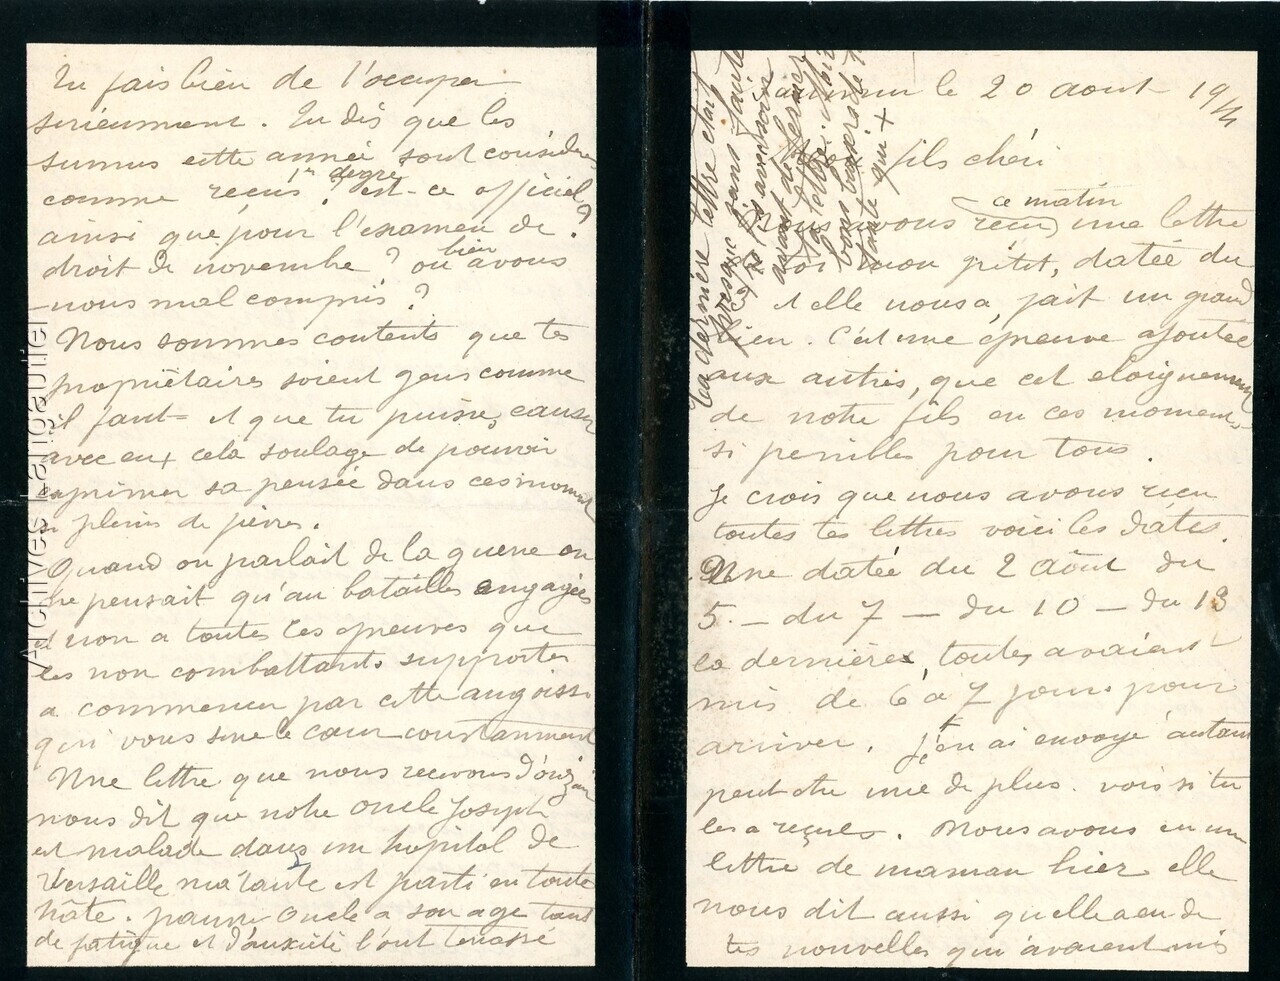 le 20 aout 1914
fils chéri
ce matin
avons reçu une lettre
toi mon petit, datée du
et elle nous a fait un grand
bien. C'est une épreuve ajoutée
aux autres, que cet eloignement
de notre fils en ces moments
si penibles pour tous.
Je crois que nous avons reçu
toutes tes lettres voici les dates.
Une datée du 2 Août du
5. - du 7 - du 10 - du 13
la dernière, toutes avaient
mis de 6 à 7 jours pour
arriver. Je t'en ai envoyé autant
peut etre une de plus. vois si tu
les a reçues. Nous avons eu une
lettre de maman hier elle
nous dit aussi qu'elle a eu de
tes nouvelles qui avaient mis
Ta dernière lettre étant
presque sans faute
avant de fermer
Tu fais bien de t'occuper
serieusement. Tu dis que les
sursis cette année sont considérés
comme reçus 1er degré ? est-ce officiel ?
ainsi que pour l'examen de
droit de novembre ? ou bien avons
-nous mal compris ?
Nous sommes contents que tes
propriètaires soient gens comme
il faut et que tu puisse causer
avec eux cela soulage de pouvoir
exprimer sa pensée dans ces moments
si pleins de fièvres.
Quand on parlait de la guerre on
ne pensait qu'au batailles engagées
et non a toutes les epreuves que
les non combattants supportes
a commencer par cette angoisse
qui vous serre le cœur constamment
Une lettre que nous recevons d'
nous dit que notre Oncle Joseph
est malade dans un hopital de
Versaille ma tante est parti en toute
hâte. pauvre Oncle a son age tant
de fatigue et d'anxiété l'ont terrassé
Archives Langautier